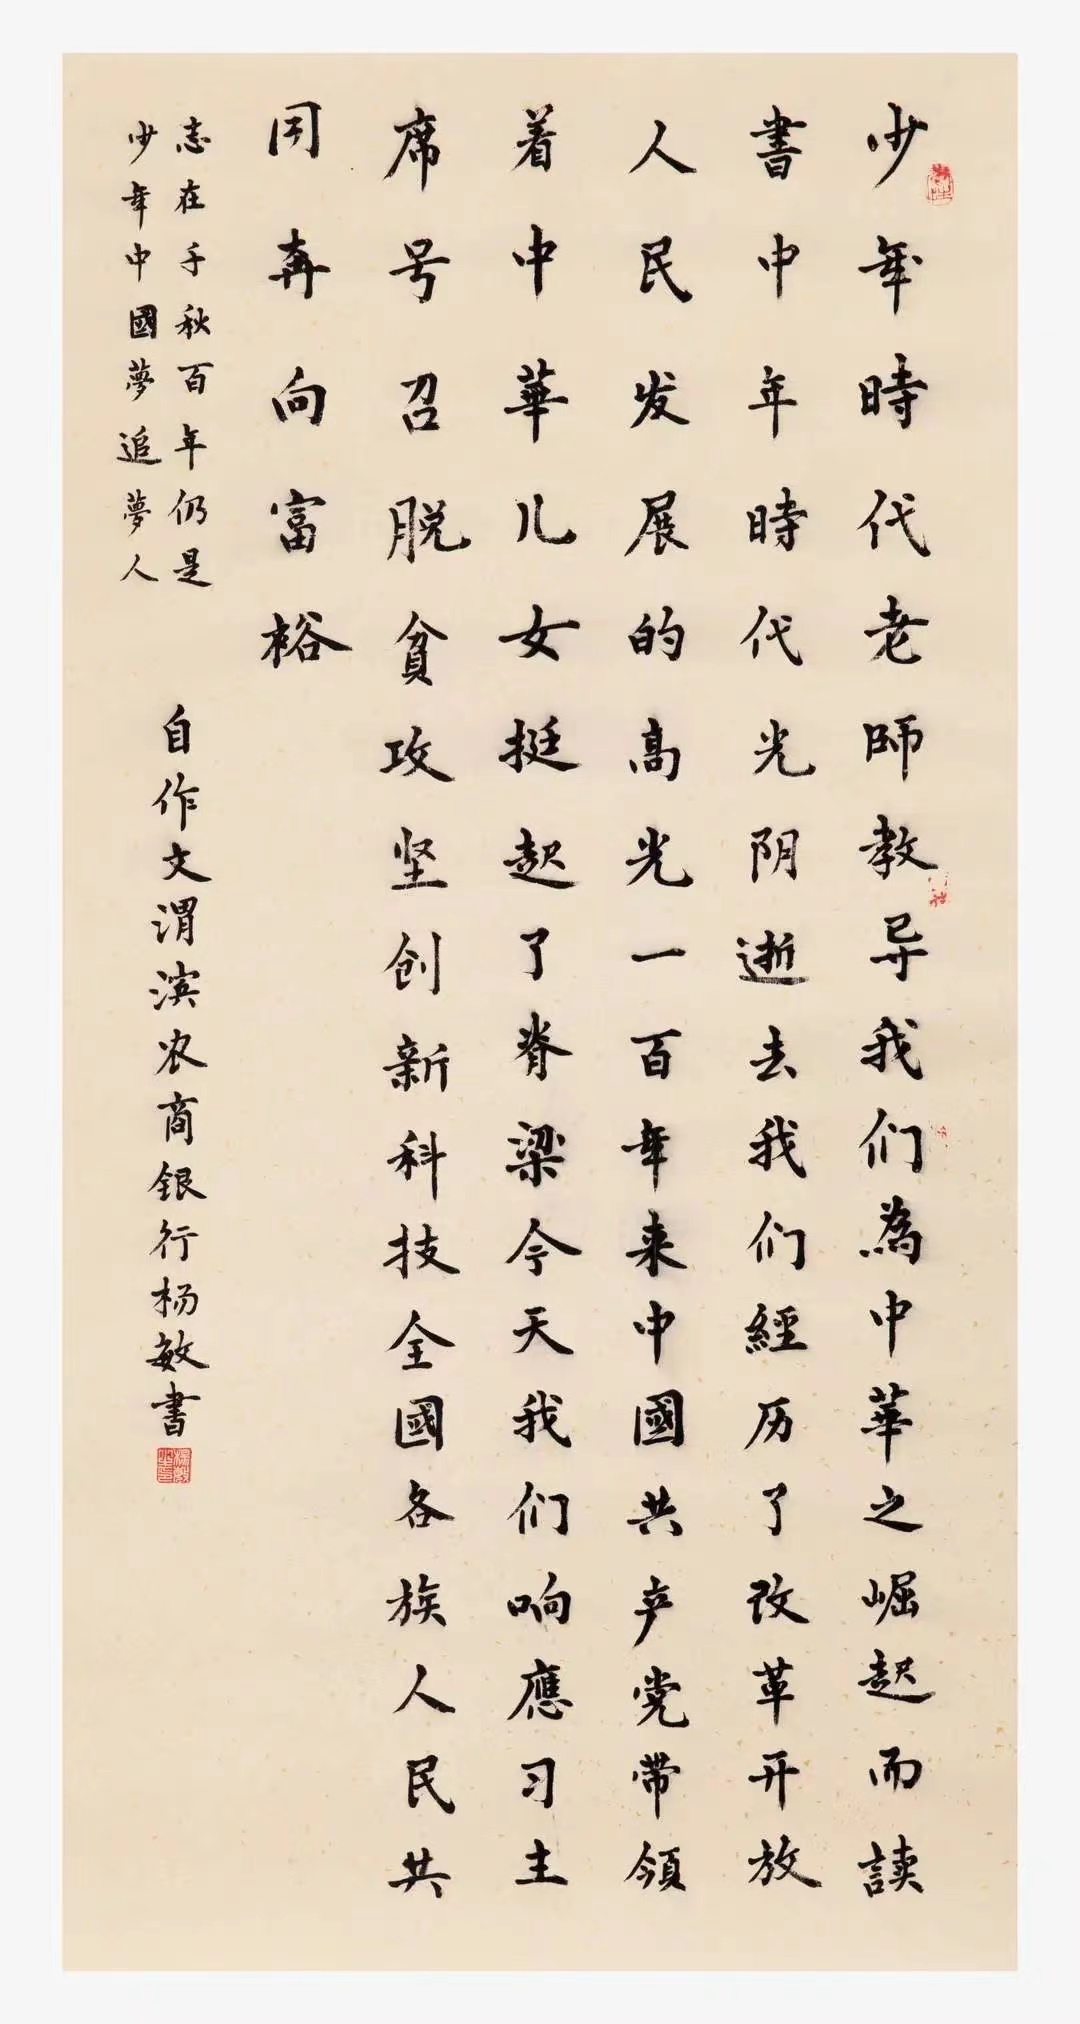 少年時代老師教导我们為中華之崛起而読
書中年時代光阴逝去我们經历了改革开放
人民发展的高光一百年来中國共产党带领
着中華儿女挺起了脊梁今天我们响應习主
席号召脱贫攻坚创新科技全國各族人民共
同奔向富裕
志在千秋百年仍是
少年中國夢追夢人
自作文渭滨农商银行杨敏書